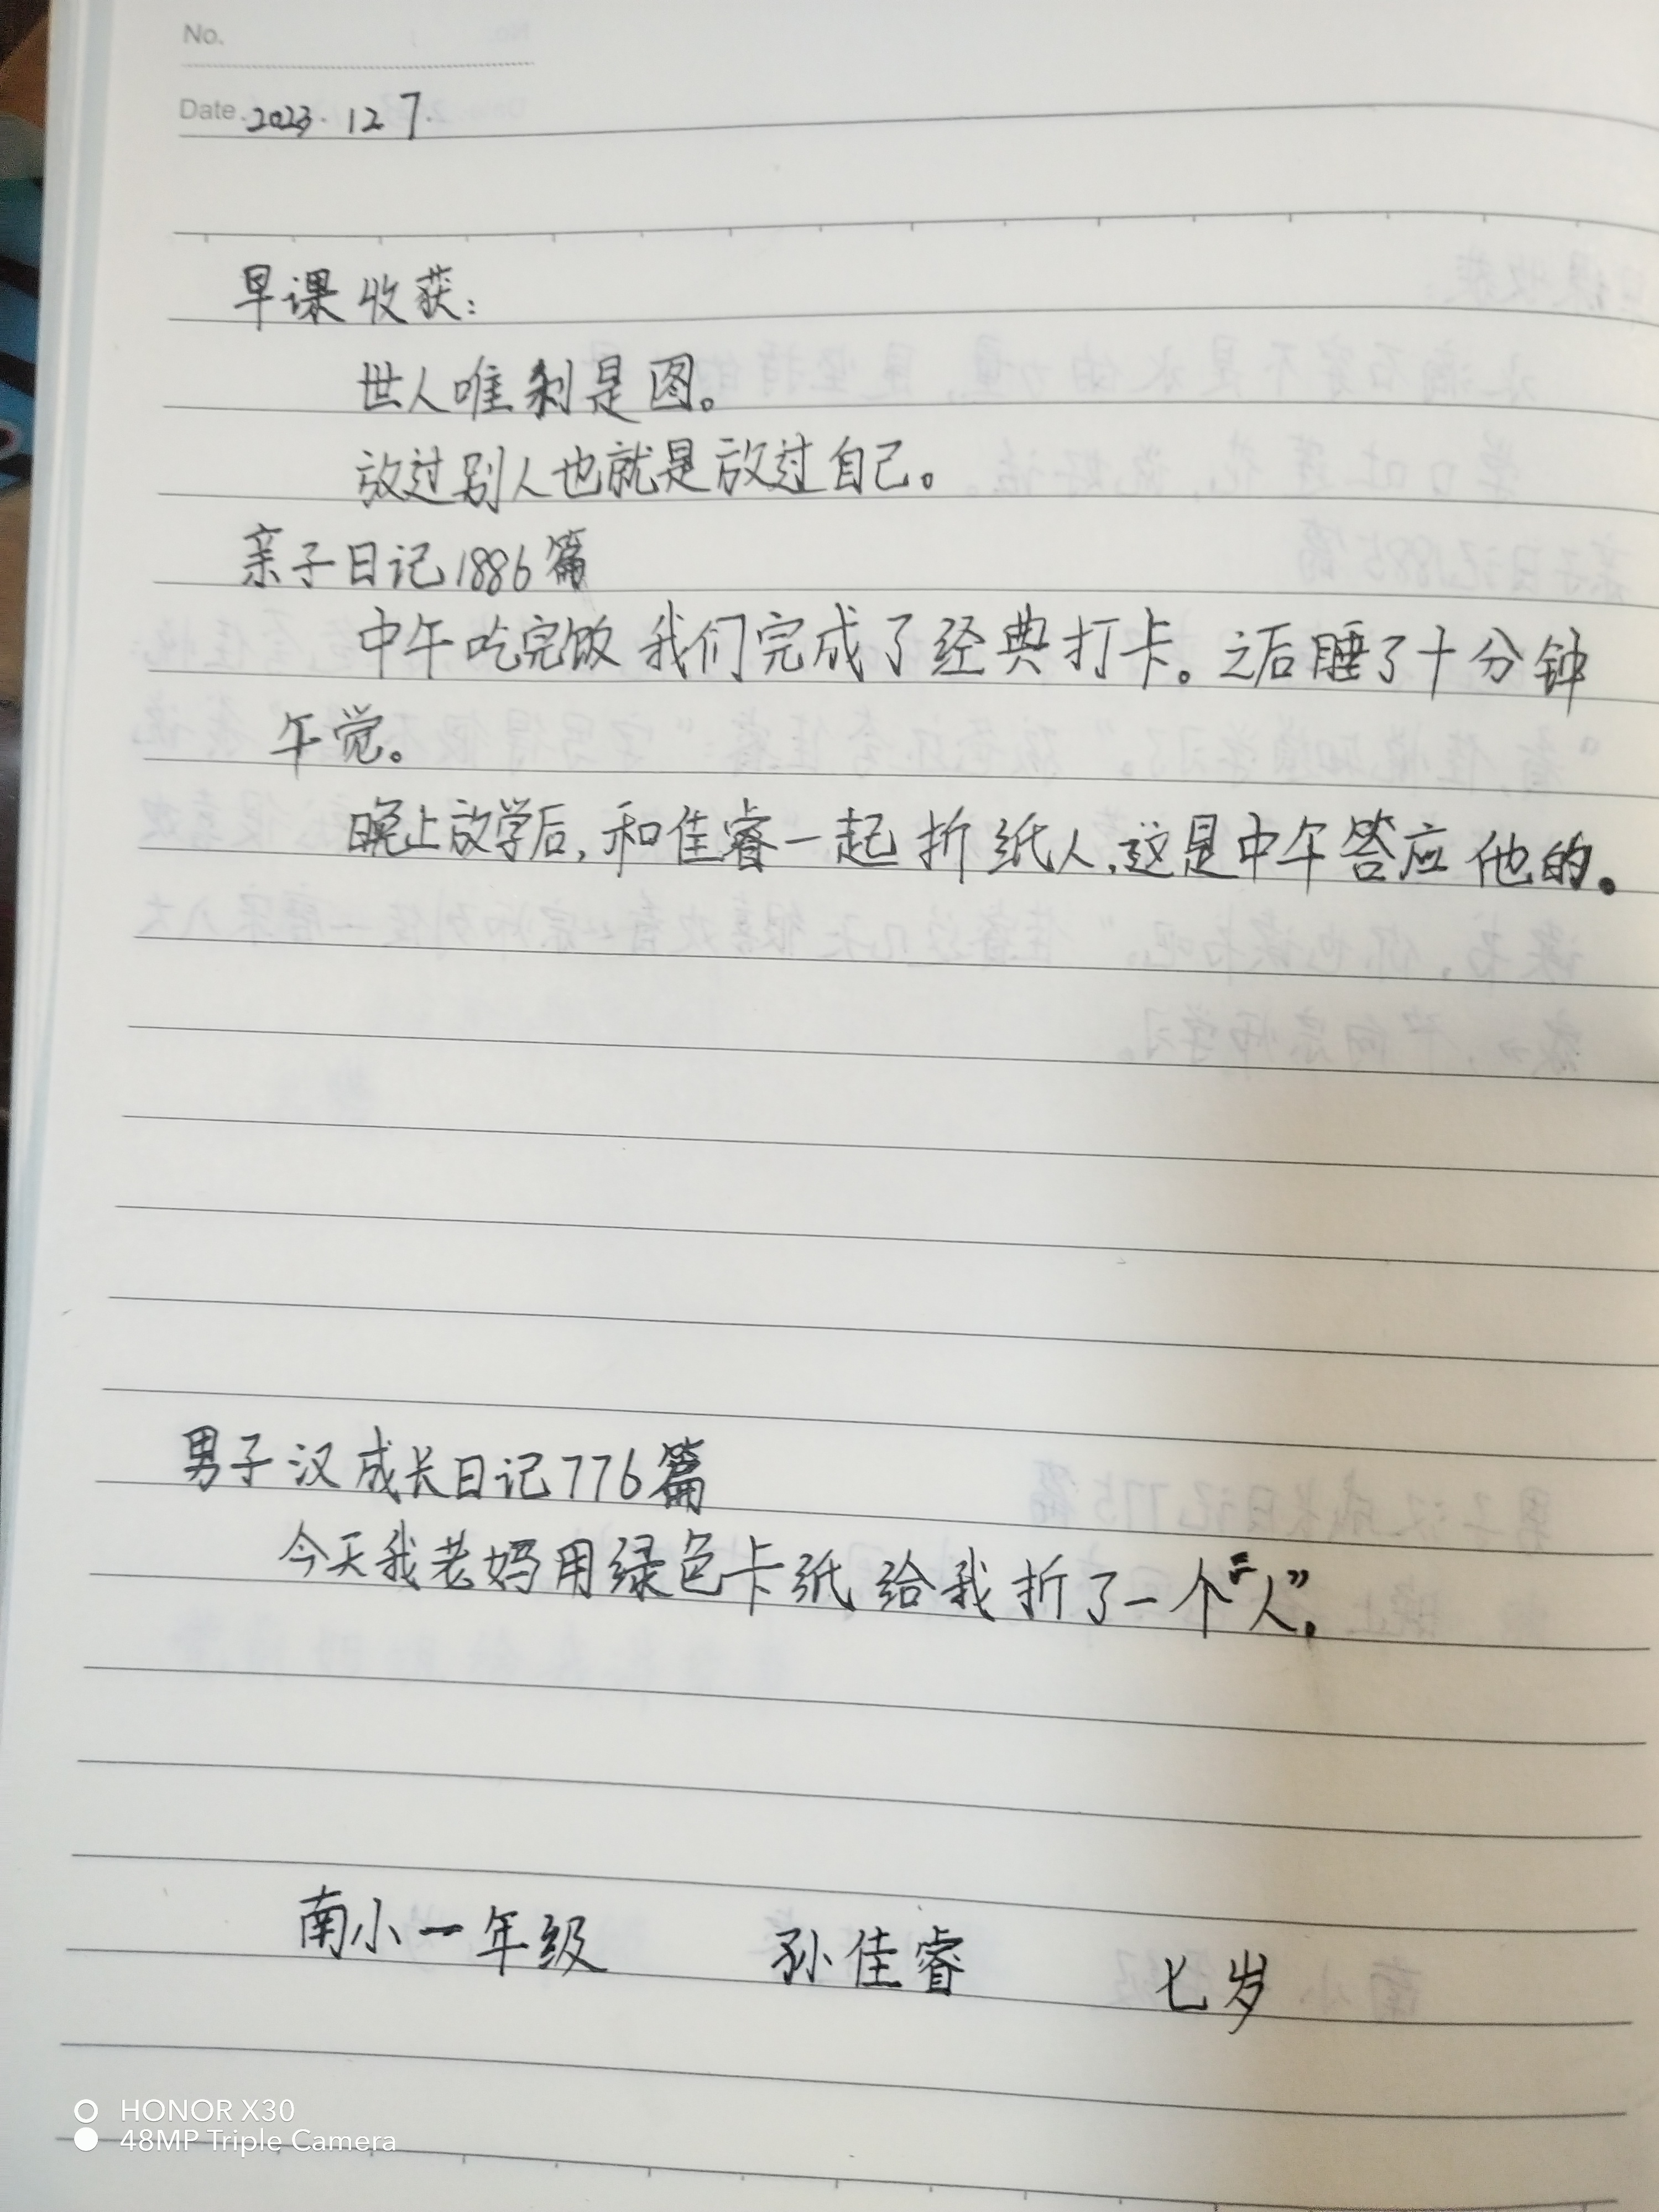 No.
Date. 2023. 12 7.
早课收获：
世人唯剩是图。
放过别人也就是放过自己。
亲子日记1886篇
中午吃完饭 我们完成了经典打卡。之后睡了十分钟
午觉。
晚上放学后，和佳睿一起折纸人，这是中午答应他的。
男子汉成长日记776篇
今天我老妈用绿色卡纸给我折了一个“人”，
南小一年级 孙佳睿 七岁
HONOR X30
48MP Triple Camera